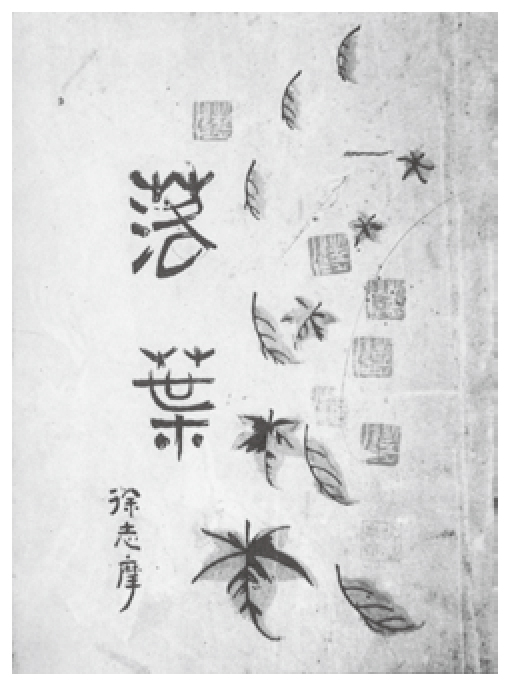 落葉
徐志摩